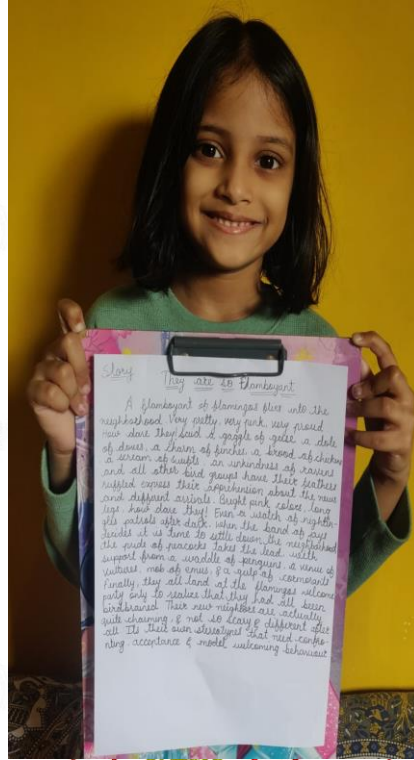 Story
They are so Flamboyent
A flamboyant of flamingos flew into the
neighborhood. Very pretty, very pink, very proud
How dare they! Said a gaggle of geese, a dole
of doves, a charm of finches, a brood of chickens
a scream of swifts, an unkindness of ravens
and all other bird groups have their feathers
ruffled express their apprehension about the news
and different arrivals. Bright pink colors, long
legs, how dare they! Even a watch of nightin-
gles patrols after dark. When the band of jays
decides it is time to settle down, the neighborhood
the pride of peacocks takes the lead with
support from a waddle of penguins, a venue of
vultures, mob of emus, & a gulp of cormorants
Finally, they all land at the flamingos welcome
party only to realise that they had all been
birdbrained. Their new neighbors are actually
quite charming, & not so scary & different after
all. Its their own stereotypes that need confro-
nting, acceptance & model welcoming behaviour